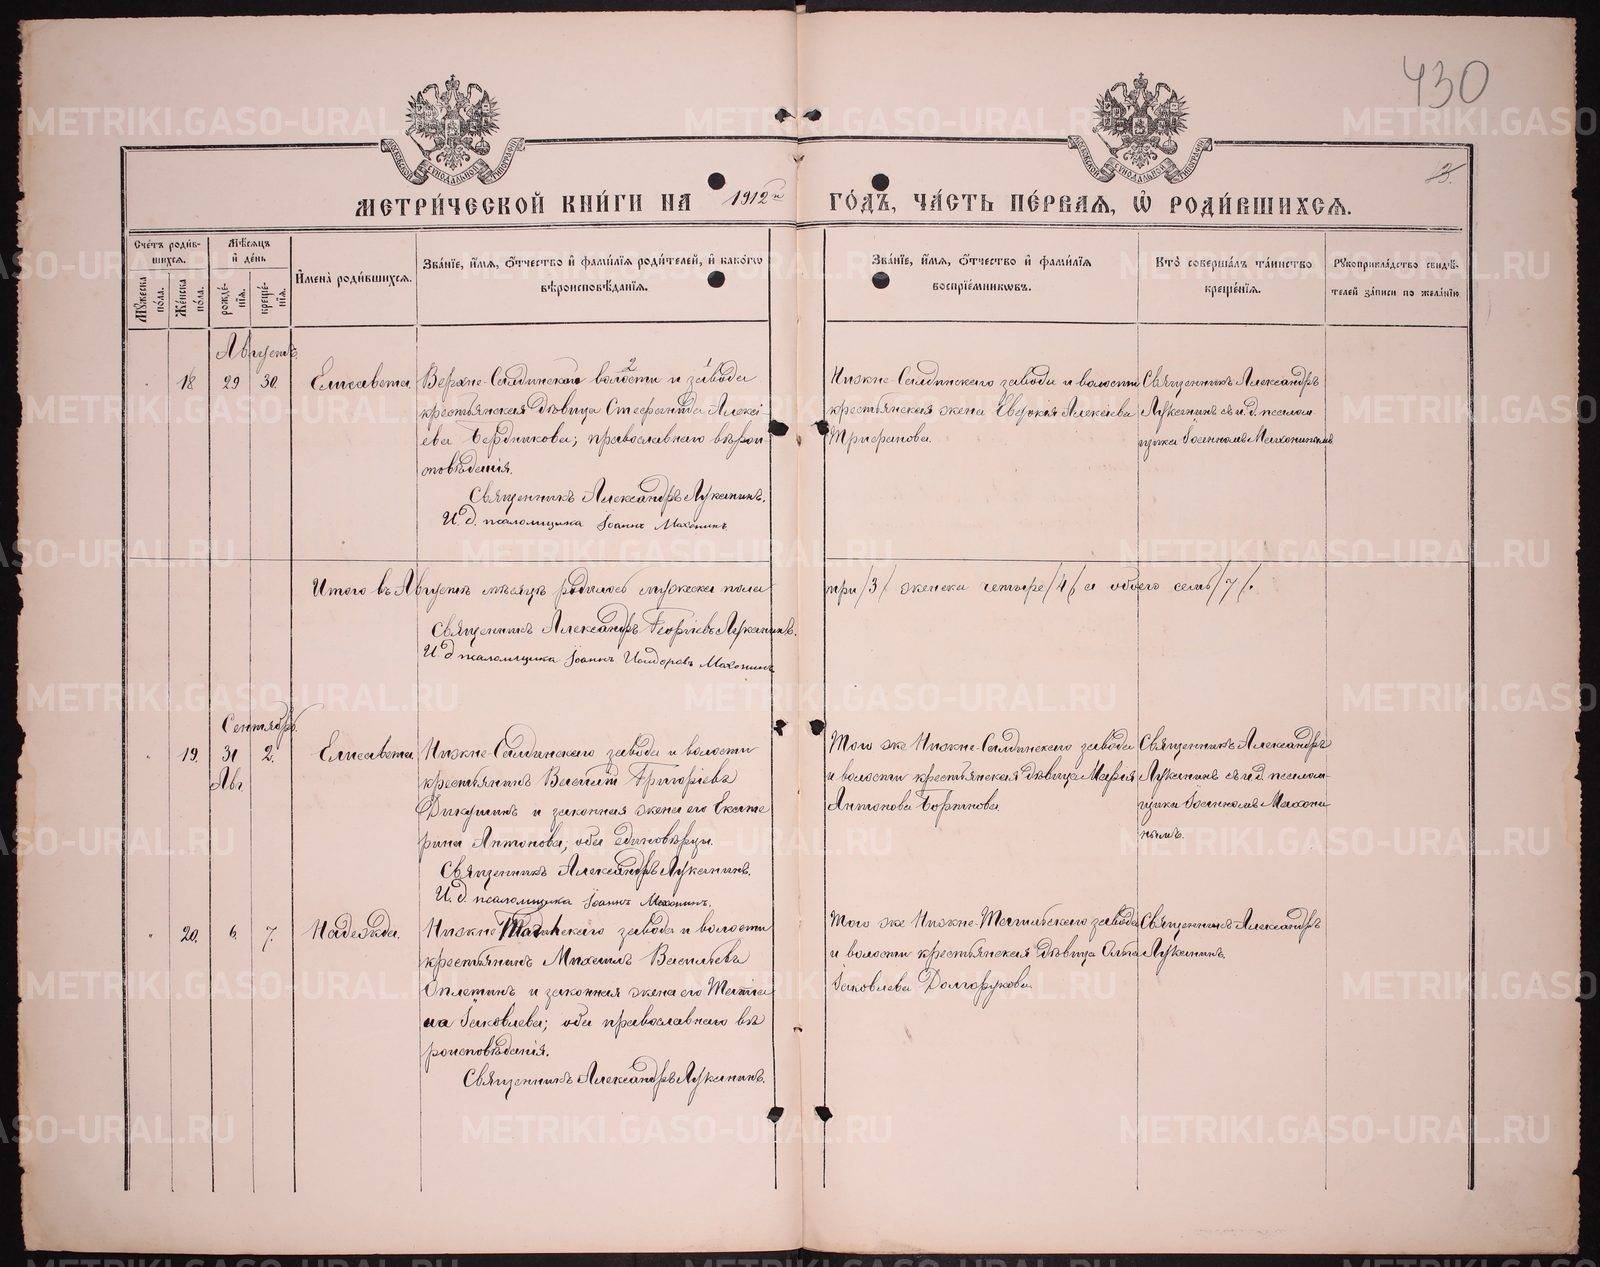 430
3.
МЕТРИЧЕСКОЙ КНИГИ НА 1912й ГОДЪ, ЧАСТЬ ПЕРВАЯ, Ѡ РОДИВШИХСЯ.
Счетъ родив-
шихся.
Мужеска пола.
Женска пола.
Мѣсяцъ
и день
рожде-
нія.
креще-
нія.
Имена родившихся.
Званіе, имя, отчество и фамилія родителей, и какого
вѣроисповѣданія.
Званіе, имя, отчество и фамилія
воспріемниковъ.
Кто совершалъ таинство
крещенія.
Рукоприкладство свидѣ-
телей записи по желанію
Августъ.
18 29 30. Елисавета
Верхне-Салдинской волости и завода
крестьянская дѣвица Стефанида Алексі-
ева Бердникова; православнаго вѣрои-
сповѣданія.
Священникъ Александръ Луканинъ.
И. д. псаломщика Іоаннъ Махонинъ
Нижне-Салдинскаго завода и волости
крестьянская жена Евдокія Алексіева
Трифанова.
Священникъ Александръ
Луканинъ съ и. д. псалом-
щика Іоанномъ Махонинымъ
Итого въ Августѣ мѣсяцѣ родилось мужеска пола три /3/ женска четыре /4/ а обоего семь /7/.
Священникъ Александръ Георгіевъ Луканинъ.
И д псаломщика Іоаннъ Исидоровъ Махонинъ
Сентябрь.
19. 31 2. Елисавета
Авг
Нижне-Салдинскаго завода и волости
крестьянинъ Василій Григоріевъ
Дикушинъ и законная жена его Екате
рина Антонова; оба единовѣрцы.
Священникъ Александръ Луканинъ.
И. д. псаломщика Іоаннъ Махонинъ.
Того же Нижне-Салдинскаго завода
и волости крестьянская дѣвица Марія
Антонова Зорихова
Священникъ Александръ
Луканинъ съ и. д. псалом-
щика Іоанномъ Махони
нымъ.
20. 6. 7. Надежда.
Нижне-Тагильскаго завода и волости
крестьянинъ Михаилъ Васильевъ
Оплетинъ и законная жена его Татіа
на Іаковлева; оба православнаго вѣ
роисповѣданія.
Священникъ Александръ Луканинъ.
Того же Нижне-Тагильскаго завода
и волости крестьянская дѣвица Ольга
Іаковлева Долгорукова.
Священникъ Александръ
Луканинъ.
METRIKI.GASO-URAL.RU